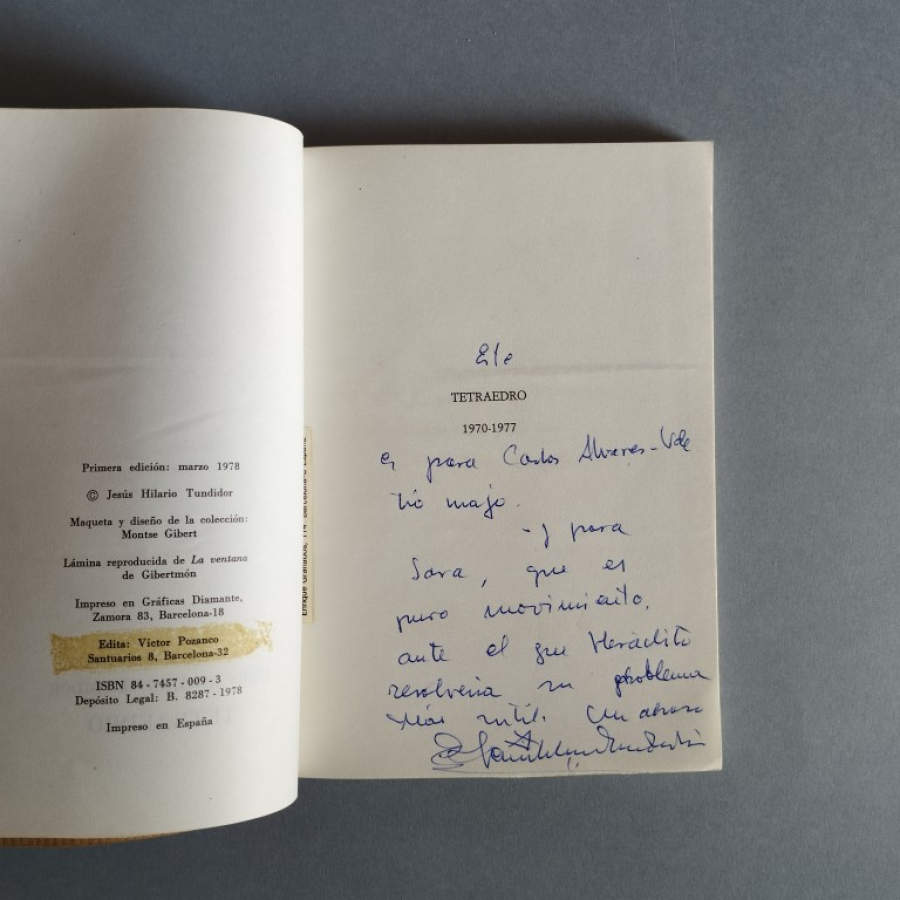 Primera edición: marzo 1978
© Jesús Hilario Tundidor
Maqueta y diseño de la colección:
Montse Gibert
Lámina reproducida de La ventana
de Gibertmón
Impreso en Gráficas Diamante,
Zamora 83, Barcelona-18
Edita: Víctor Pozanco
Santuarios 8, Barcelona-32
ISBN 84-7457-009-3
Depósito Legal: B. 8287-1978
Impreso en España
Enrique Granados, 114 Barcelona-8 España
Este
TETRAEDRO
1970-1977
es para Carlos Alvarez-Ude
tío majo.
- y para
Sara, que es
puro movimiento,
ante el que Heráclito
resolvería su problema
más sutil. Un abrazo